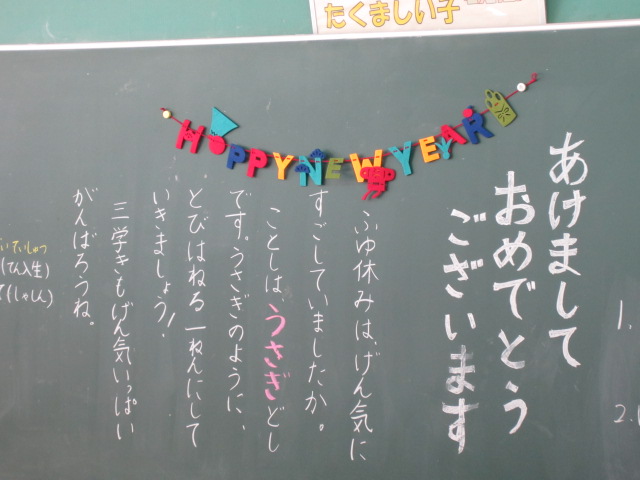 たくましい子
HAPPY NEW YEAR
1.
2.
あけまして
おめでとう
ございます
ふゆ休みは、げん気に
すごしていましたか。
ことしは、うさぎどし
です。うさぎのように、
とびはねる一ねんにして
いきましょう！
三学きもげん気いっぱい
がんばろうね。
いていしゅつ
(てん入生)
て(しゃしん)